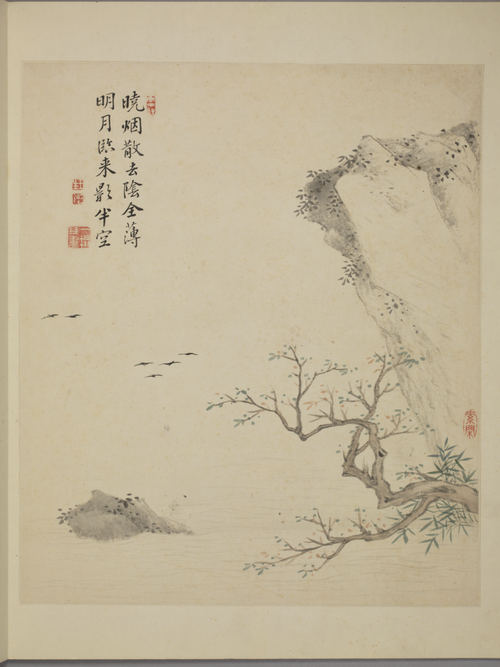 曉烟散去陰全薄
明月臨来影半空